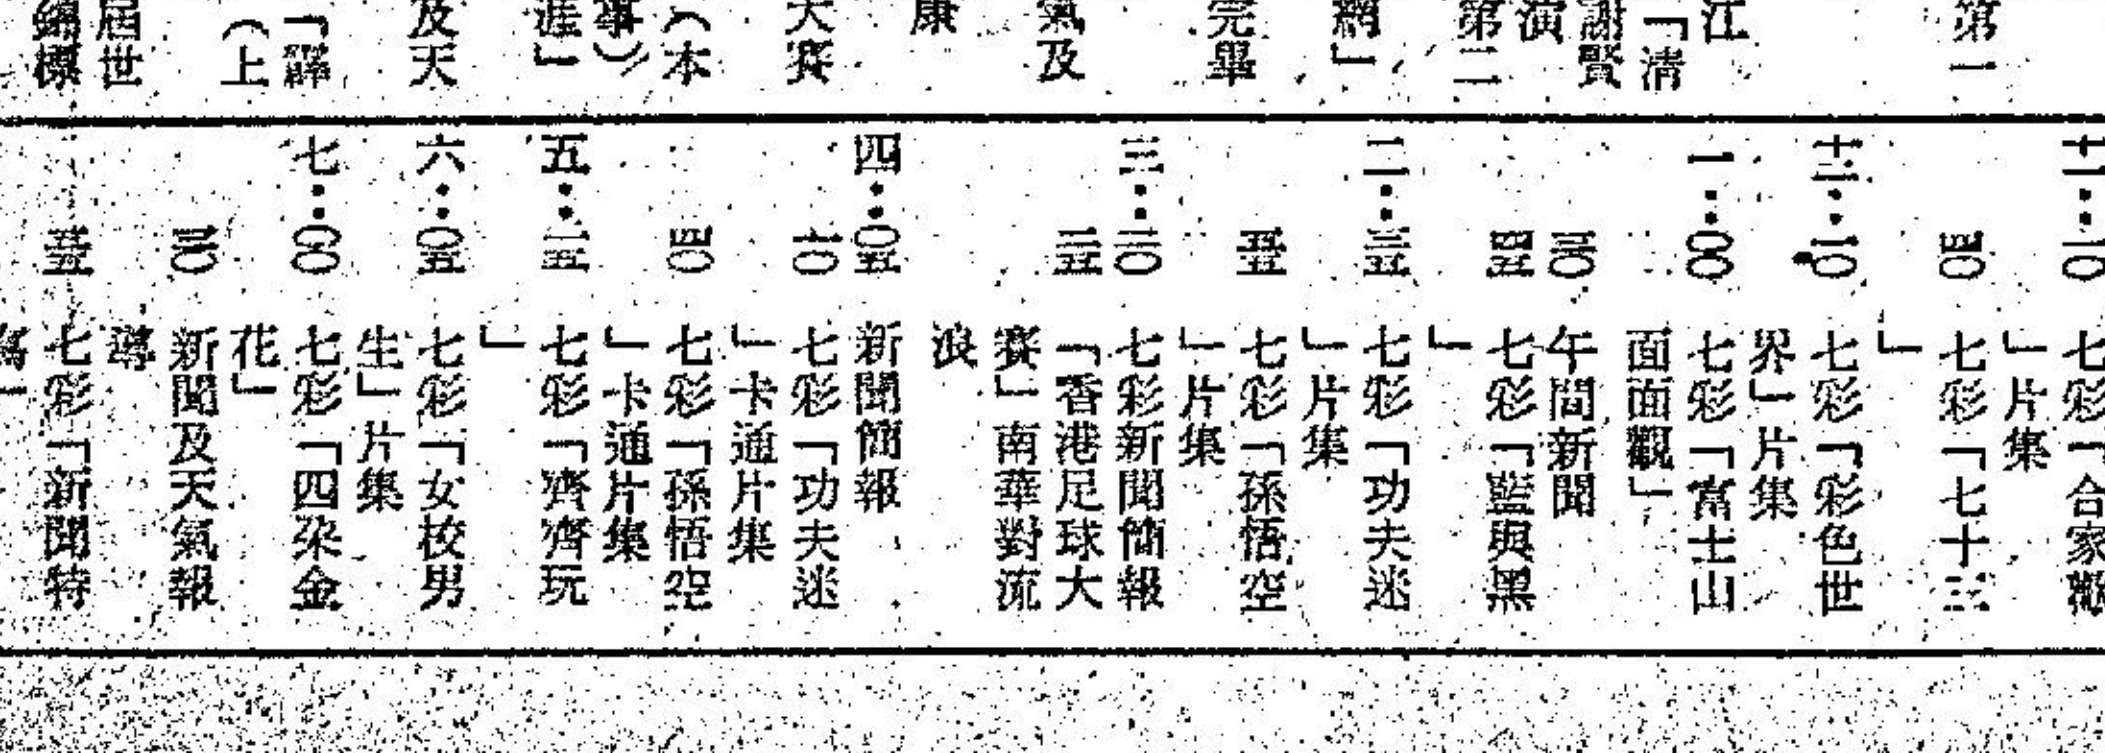 第一
江
「清
謝賢
演
第二
網」
完畢
氣及
康
大賽
（本
事）
涯」
及天
「驛
（上
屆世
錦標
十一：一〇 七彩「合家歡
」片集
四〇 七彩「七十三
」
十二：一〇 七彩「彩色世
界」片集
一：〇〇 七彩「富士山
面面觀」
三〇 午間新聞
四五 七彩「藍與黑
」
二：三五 七彩「功夫迷
」片集
五五 七彩「孫悟空
」片集
三：二〇 七彩新聞簡報
二五 「香港足球大
賽」南華對流
浪
四：〇五 新聞簡報
一〇 七彩「功夫迷
」卡通片集
四〇 七彩「孫悟空
」卡通片集
五：一五 七彩「齊齊玩
」
六：〇五 七彩「女校男
生」片集
七：〇〇 七彩「四朵金
花」
三〇 新聞及天氣報
導
五五 七彩「新聞特
寫」